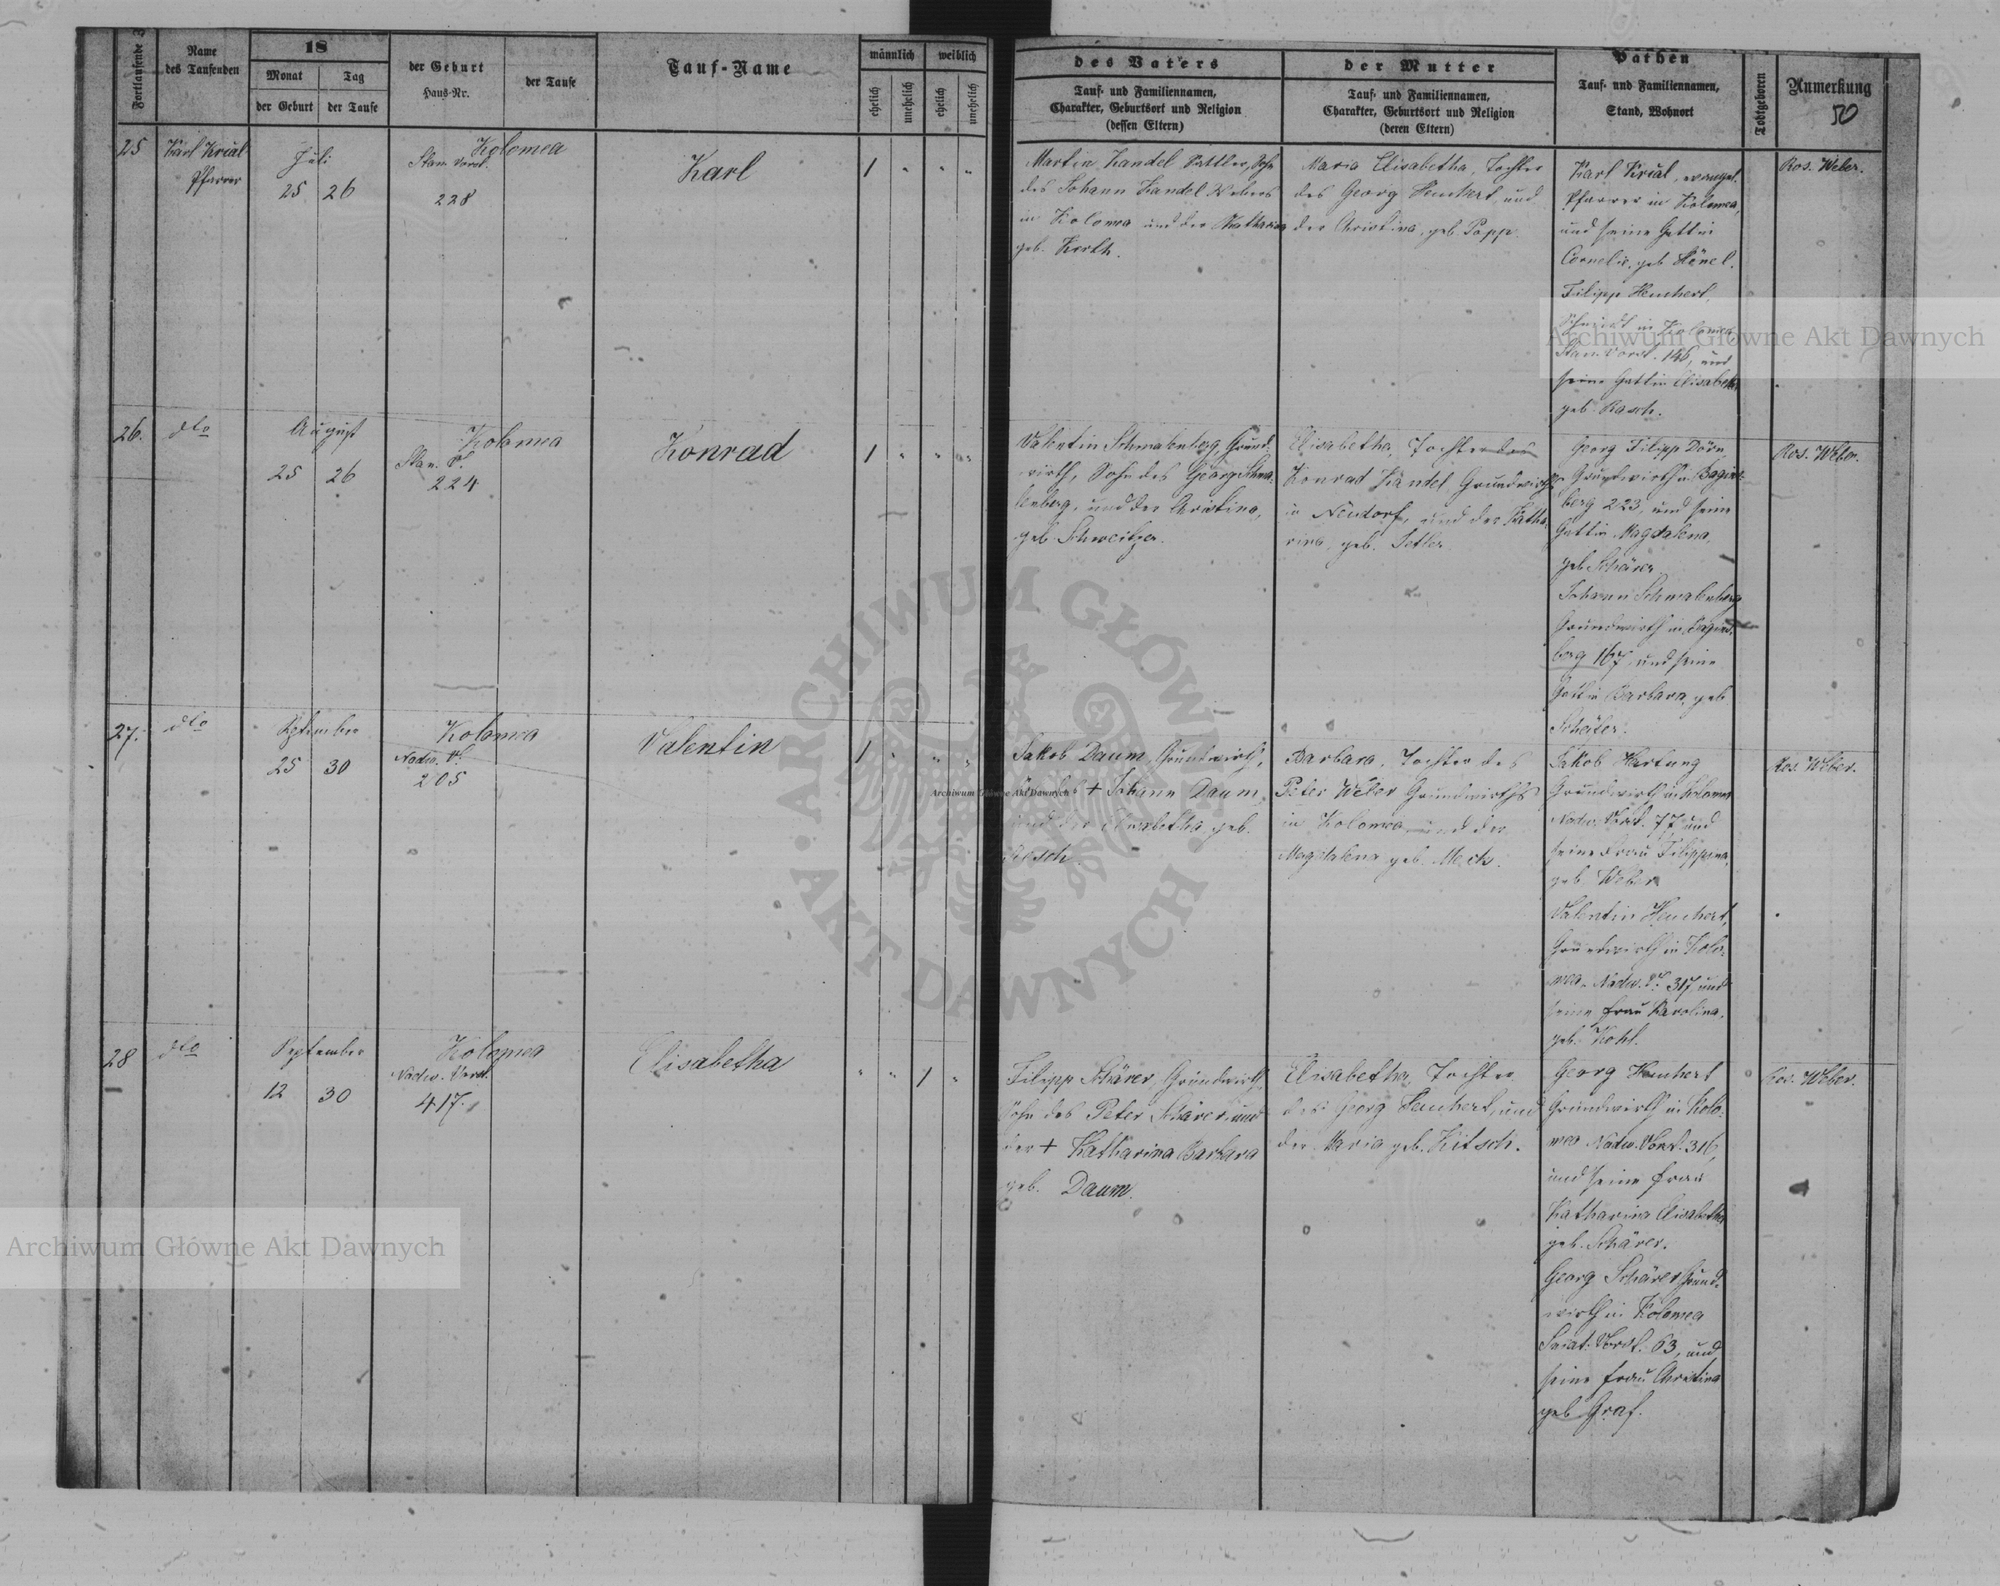 Fortlaufende Z
Name
des Taufenden
18
Monat
Tag
der Geburt
der Taufe
der Geburt
Haus-Nr.
der Taufe
Tauf-Name
männlich
weiblich
ehelich
unehelich
ehelich
unehelich
des Vaters
Tauf- und Familiennamen,
Charakter, Geburtsort und Religion
(dessen Eltern)
der Mutter
Tauf- und Familiennamen,
Charakter, Geburtsort und Religion
(deren Eltern)
Pathen
Tauf- und Familiennamen,
Stand, Wohnort
Todtgeboren
Anmerkung
50
25
Karl Krial
Pfarrer
Juli
25 26
Kolomea
Stan. Vorst.
228
Karl
1 " " "
Martin Kandel Sattler, Sohn
des Johann Kandel Webers
in Kolomea und der Katharina
geb. Korth.
Maria Elisabetha, Tochter
des Georg Heuchert, und
der Christina, geb. Popp.
Karl Krial, evangel.
Pfarrer in Kolomea,
und seine Gattin
Cornelie, geb. Hönel.
Filipp Heuchert,
Schmidt in Kolomea
Stan. Vorst. 146, und
seine Gattin Elisabetha
geb. Rasch.
Ros. Weber.
26.
dto
August
25 26
Kolomea
Stan. V.
224
Konrad
1 " " "
Valentin Schmalenberg, Grund-
wirth, Sohn des Georg Schma-
lenberg, und der Christina,
geb. Schweitzer.
Elisabetha, Tochter des
Konrad Kandel Grundwirths
in Neudorf, und der Katha-
rina, geb. Setler
Georg Filipp Dörn,
Grundwirth in Bagins-
berg 223, und seine
Gattin Magdalena,
geb. Schärer
Johann Schmalenberg
Grundwirth in Bagins-
berg 167, und seine
Gattin Barbara, geb.
Ros. Weber.
27.
dto
September
25 30
Kolomea
Nadw. V.
205
Valentin
1 " " "
Jakob Daum, Grundwirth,
Sohn des + Johann Daum,
und der Elisabetha, geb.
Barbara, Tochter des
Peter Weber Grundwirths
in Kolomea, und der
Magdalena geb. Meck.
Jakob Hartung
Grundwirth in Kolomea
Nadw. Vorst. 77 und
seine Frau Filippina,
geb. Weber
Valentin Heuchert,
Grundwirth in Kolo-
mea, Nadw. V. 317 und
seine Frau Karolina,
geb. Kohl.
Ros. Weber.
28
dto
September
12 30
Kolomea
Nadw. Vorst.
417.
Elisabetha
" " 1 "
Filipp Schärer, Grundwirth,
Sohn des Peter Schärer, und
der + Katharina Barbara
geb. Daum.
Elisabetha, Tochter
des Georg Heuchert, und
der Maria geb. Kitsch.
Georg Heuchert
Grundwirth in Kolo-
mea Nadw. Vorst. 316,
und seine Frau
Katharina Elisabetha
geb. Schärer.
Georg Schärer Grund-
wirth in Kolomea
Sniat. Vorst. 63, und
seine Frau Christina
geb. Graf.
Ros. Weber.
Archiwum Główne Akt Dawnych
Archiwum Główne Akt Dawnych
Archiwum Główne Akt Dawnych
ARCHIWUM GŁÓWNE
AKT DAWNYCH